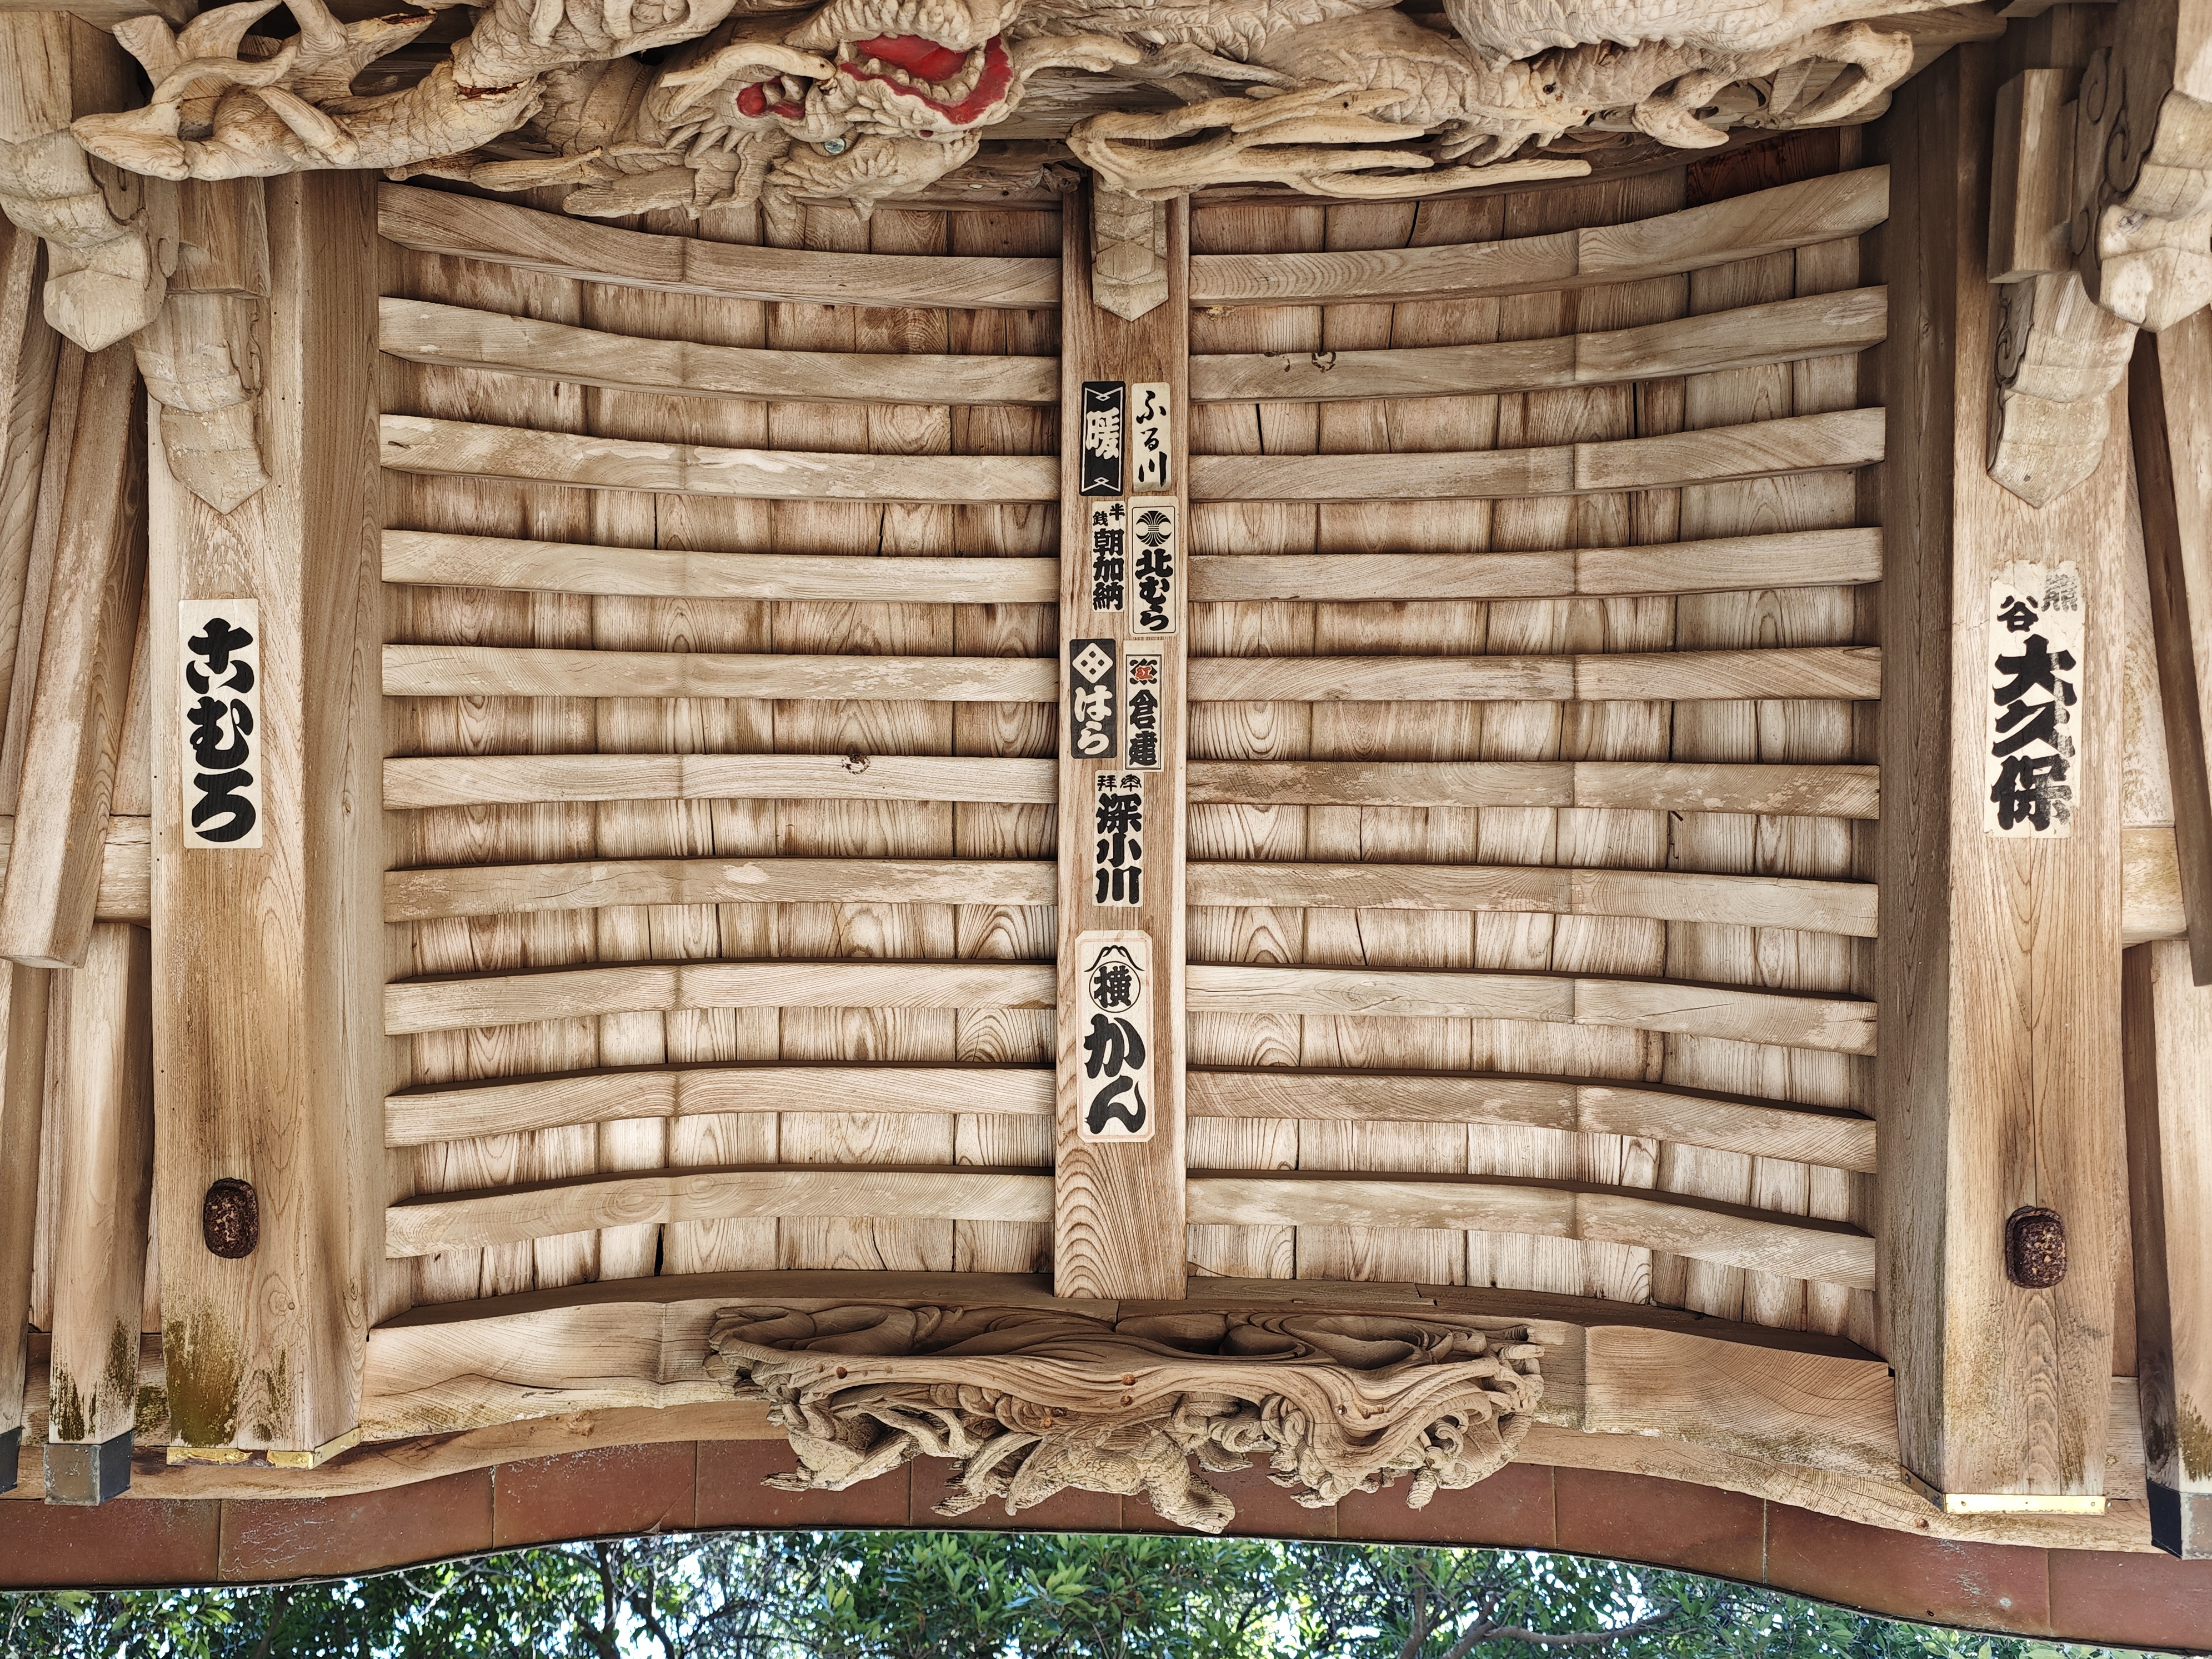 こむろ
暖
ふる川
半銭
朝加納
北むら
はら
倉建
奉拝
深小川
横
かん
熊谷
大久保